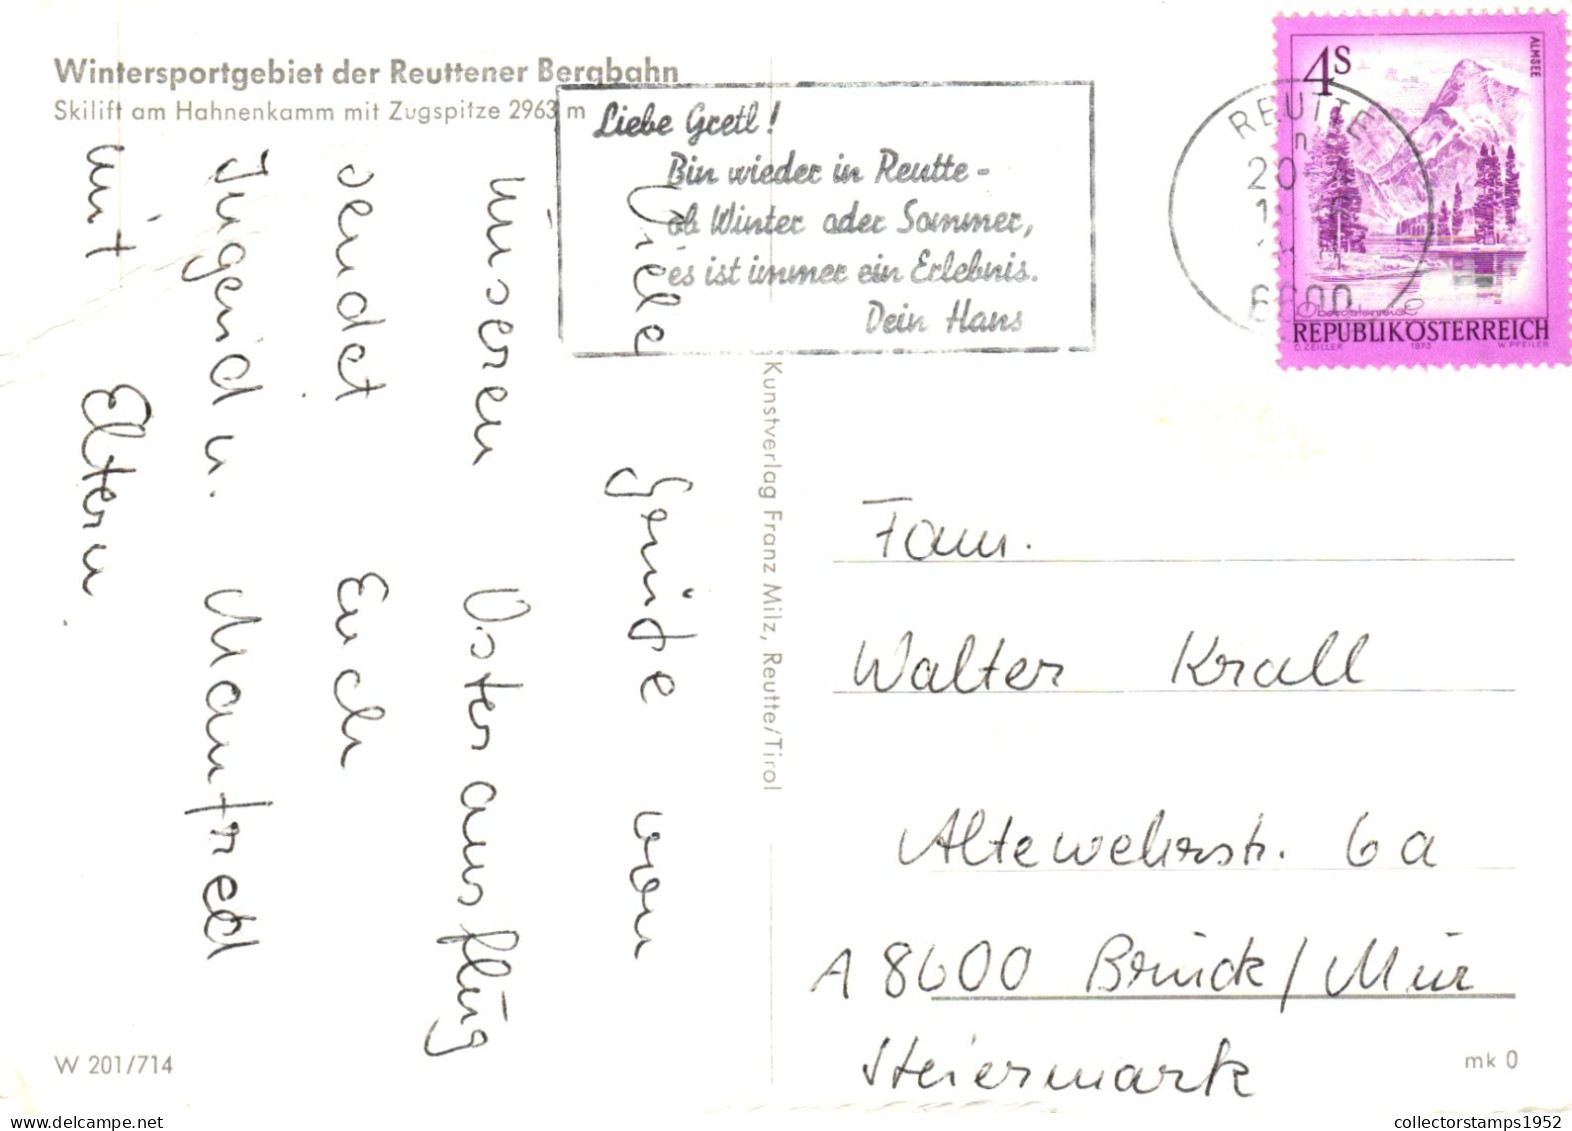 Wintersportgebiet der Reuttener Bergbahn
Skilift am Hahnenkamm mit Zugspitze 2963 m
Liebe Gretl!
Bin wieder in Reutte -
ob Winter oder Sommer,
es ist immer ein Erlebnis.
Dein Hans
REUTTE
6600
4S
ALMSEE
Oberösterreich
REPUBLIK ÖSTERREICH
O. ZEILER 1973 W. PFEILER
Viele Grüße von
unseren Osterausflug
sendet Euch
Jugend u. Manfred
mit Eltern.
Kunstverlag Franz Milz, Reutte/Tirol
Fam.
Walter Krall
Altewehrstr. 6a
A 8600 Bruck / Mur
Steiermark
W 201/714
mk 0
collectorstamps1952